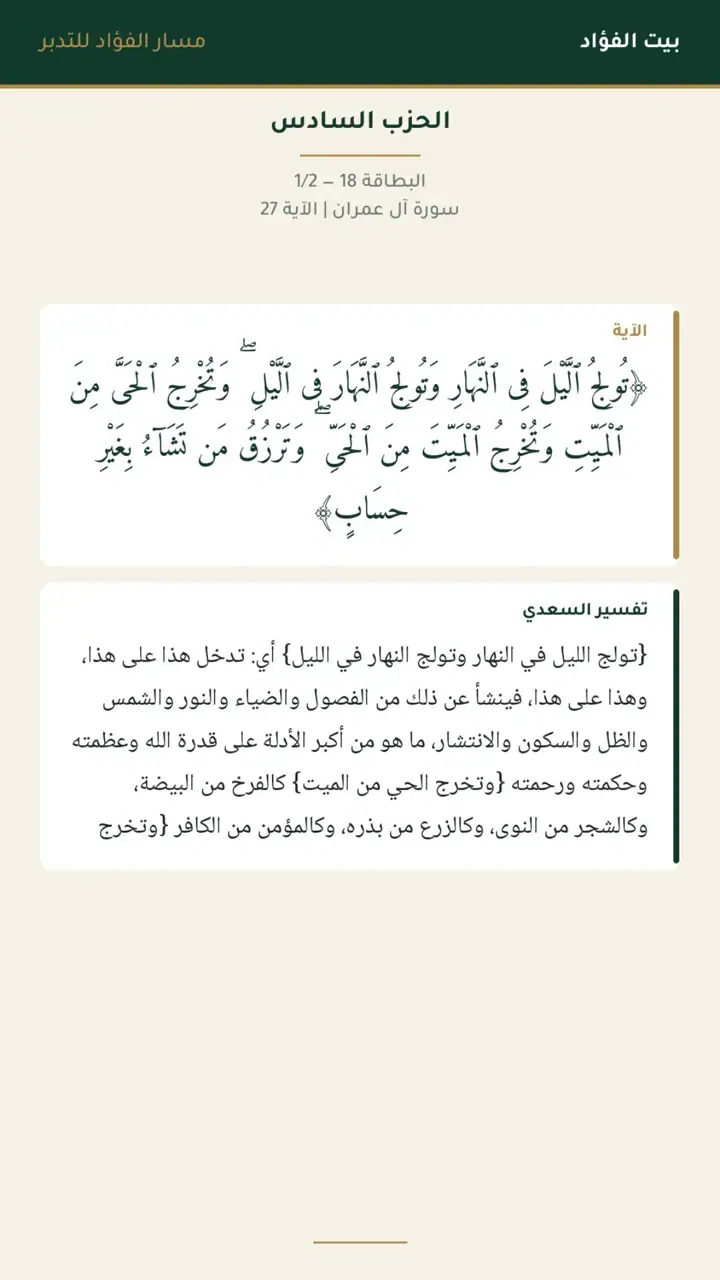 بيت الفؤاد
مسار الفؤاد للتدبر
الحزب السادس
البطاقة 18 – 1/2
سورة آل عمران | الآية 27
الآية
﴿تُولِجُ ٱلَّيْلَ فِى ٱلنَّهَارِ وَتُولِجُ ٱلنَّهَارَ فِى ٱلَّيْلِ ۖ وَتُخْرِجُ ٱلْحَىَّ مِنَ
ٱلْمَيِّتِ وَتُخْرِجُ ٱلْمَيِّتَ مِنَ ٱلْحَىِّ ۖ وَتَرْزُقُ مَن تَشَآءُ بِغَيْرِ
حِسَابٍ﴾
تفسير السعدي
{تولج الليل في النهار وتولج النهار في الليل} أي: تدخل هذا على هذا،
وهذا على هذا، فينشأ عن ذلك من الفصول والضياء والنور والشمس
والظل والسكون والانتشار، ما هو من أكبر الأدلة على قدرة الله وعظمته
وحكمته ورحمته {وتخرج الحي من الميت} كالفرخ من البيضة،
وكالشجر من النوى، وكالزرع من بذره، وكالمؤمن من الكافر {وتخرج